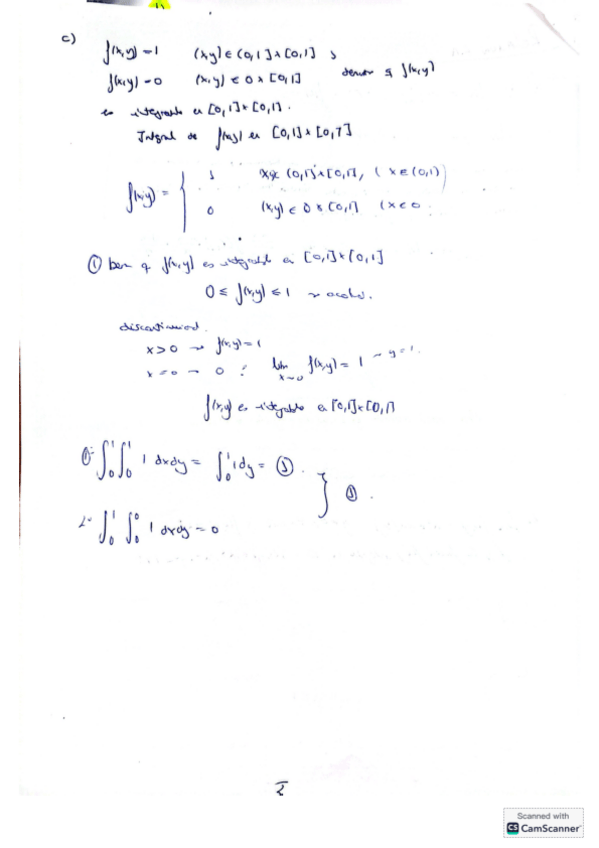 c)
f(x,y)=1 (x,y)∈(0,1]×[0,1] y
f(x,y)=0 (x,y)∈0×[0,1] demos q f(x,y)
es integrable en [0,1]×[0,1].
Integral de f(x,y) en [0,1]×[0,1]
f(x,y) = { 1 (0,1]×[0,1], (x∈(0,1)
0 (x,y)∈0×[0,1] (x∈0
① Dem q f(x,y) es integrable en [0,1]×[0,1]
0 ≤ f(x,y) ≤ 1 → acotada.
discontinuidad.
x>0 → f(x,y)=1
x=0 → 0 lim x→0 f(x,y)=1
f(x,y) es integrable en [0,1]×[0,1]
1- ∫₀¹∫₀¹ 1 dxdy = ∫₀¹ 1 dy = ①.
} ①.
2- ∫₀¹∫₀⁰ 1 dxdy = 0
2
Scanned with
CS CamScanner